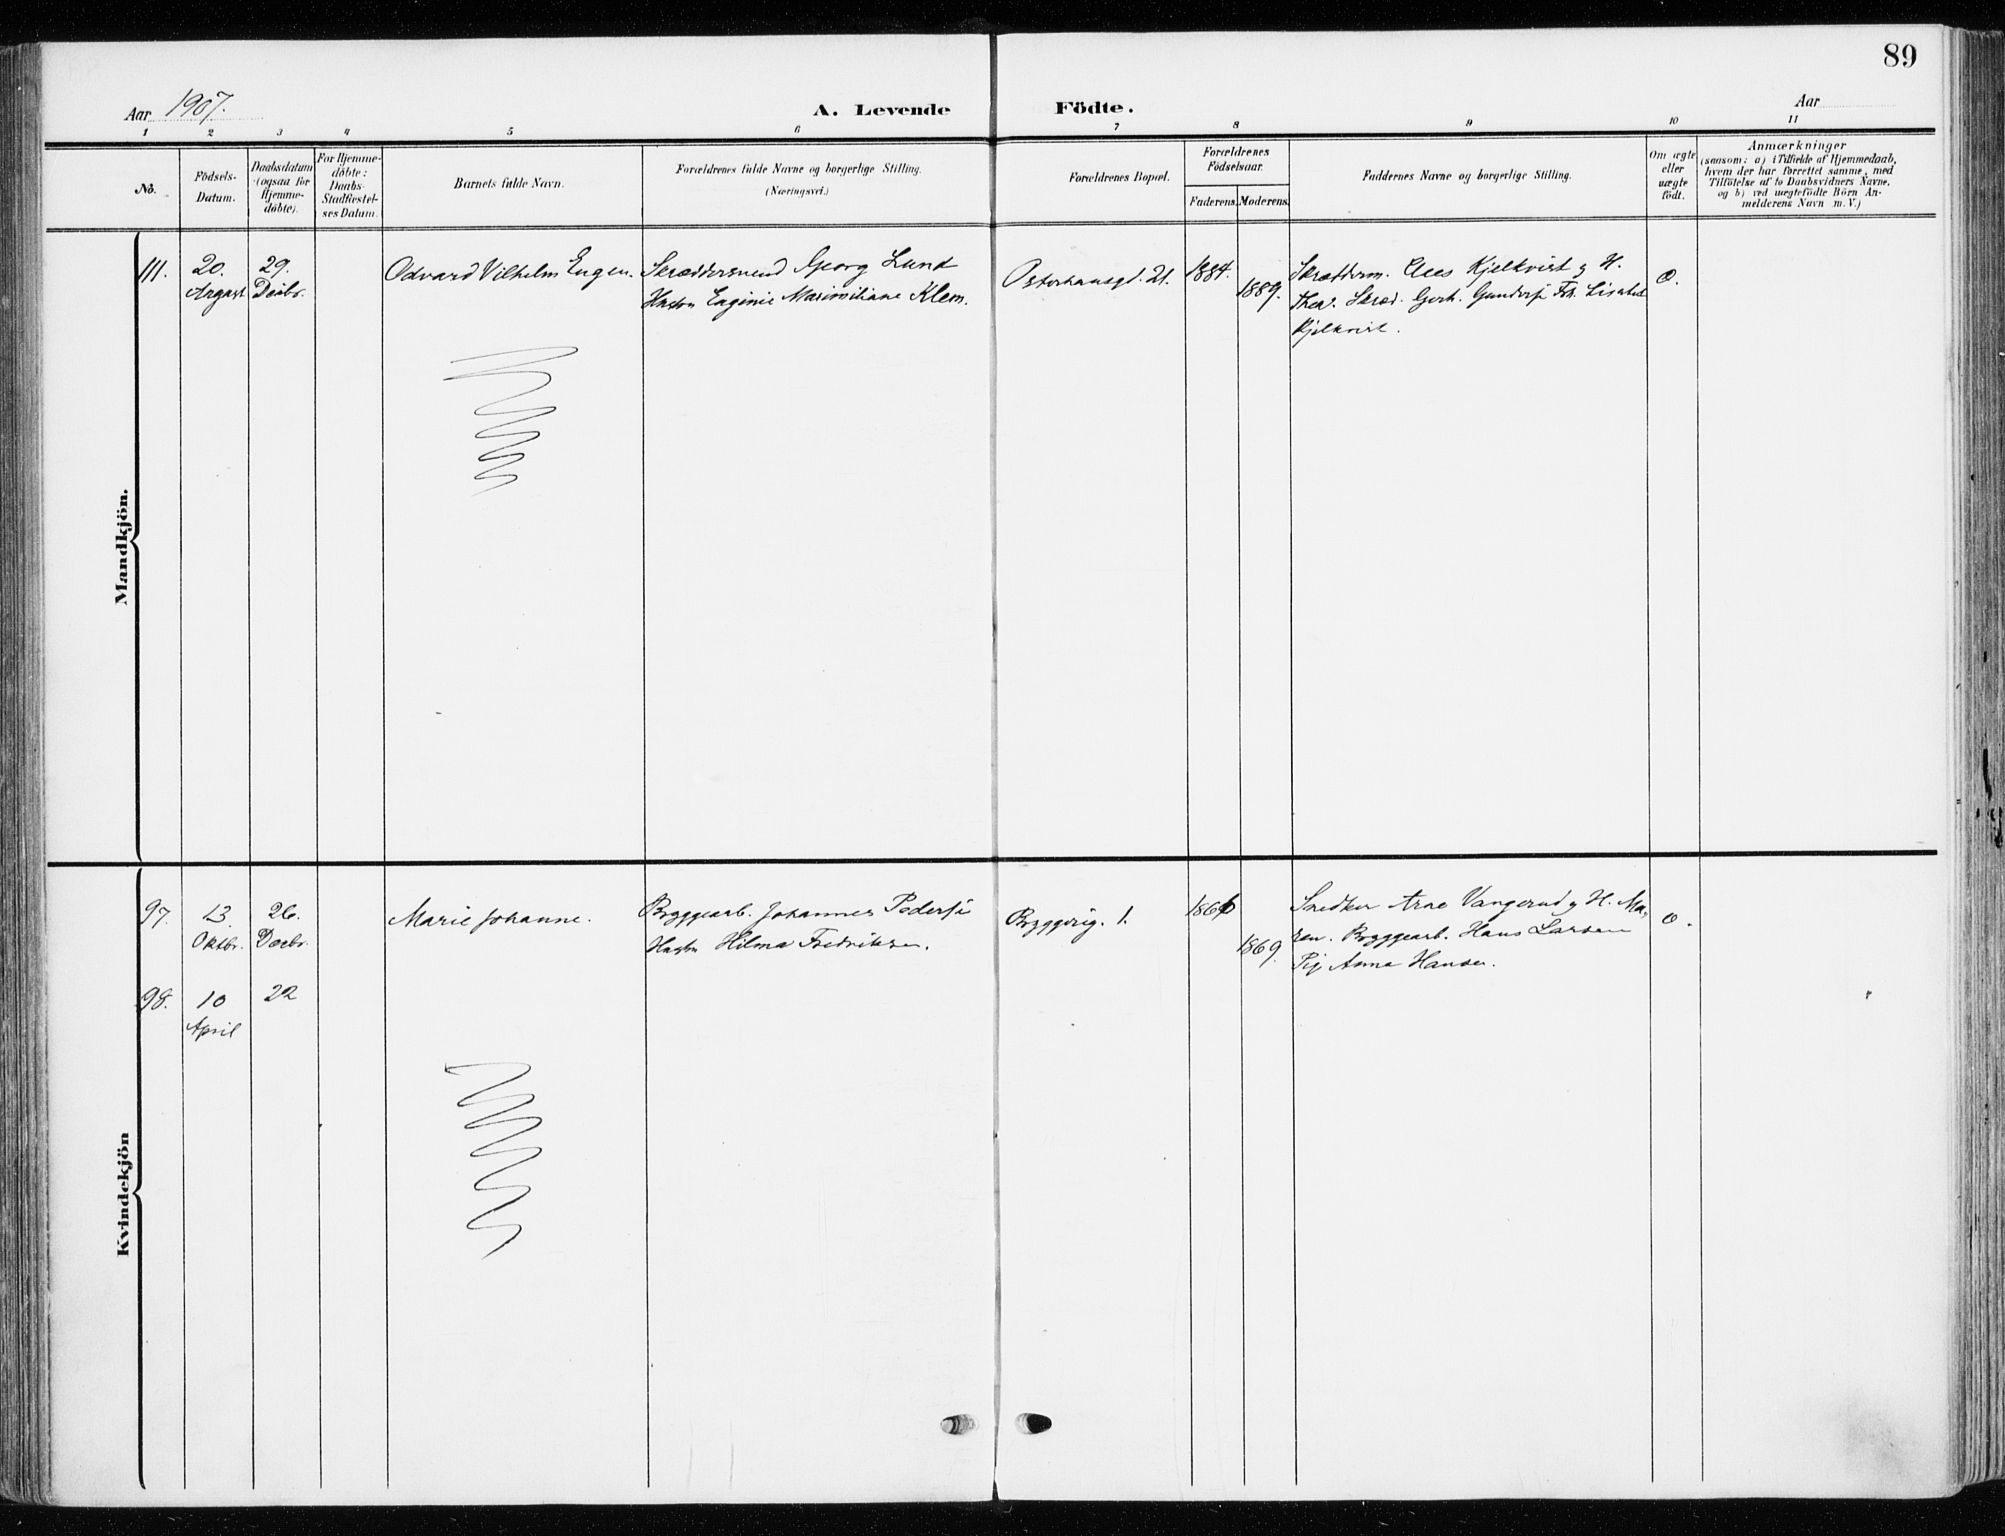 89
Aar 1907.
A. Levende Födte.
Aar
1 2 3 4 5 6 7 8 9 10 11
No.
Födsels-
Datum.
Daabsdatum
(ogsaa for
Hjemme-
döbte).
For Hjemme-
döbte:
Daabs-
Stadfæstel-
ses Datum.
Barnets fulde Navn.
Forældrenes fulde Navne og borgerlige Stilling.
(Næringsvei.)
Forældrenes Bopæl.
Forældrenes
Födselsaar.
Faderens. Moderens.
Faddernes Navne og borgerlige Stilling.
Om ægte
eller
uægte
födt.
Anmærkninger
(saasom: a) i Tilfælde af Hjemmedaab,
hvem der har forrettet samme, med
Tilföielse af to Daabsvidners Navne,
og b) ved uægtefödte Börn An-
melderens Navn m. V.)
Mandkjön.
111.
20.
August
29.
Decbr.
Odvard Vilhelm Eugen.
Skræddersvend Georg Lund
Hustru Euginie Maximiliane Klem.
Osterhausgd. 21.
1884.
1889.
Kjelkvist & H.
Thea. Skræd.
Kjelkvist.
Kvindekjön
97.
13.
Oktbr.
26.
Decbr.
Marie Johanne.
Byggearb. Johannes Peders.
Hustru Hilma Fredriksen.
Bryggerig. 1.
1869.
Snedker Arne Vangerud & H. Ma-
ren. Byggearb. Hans Larsen
Pig. Anna Hansen.
98.
10
April
22